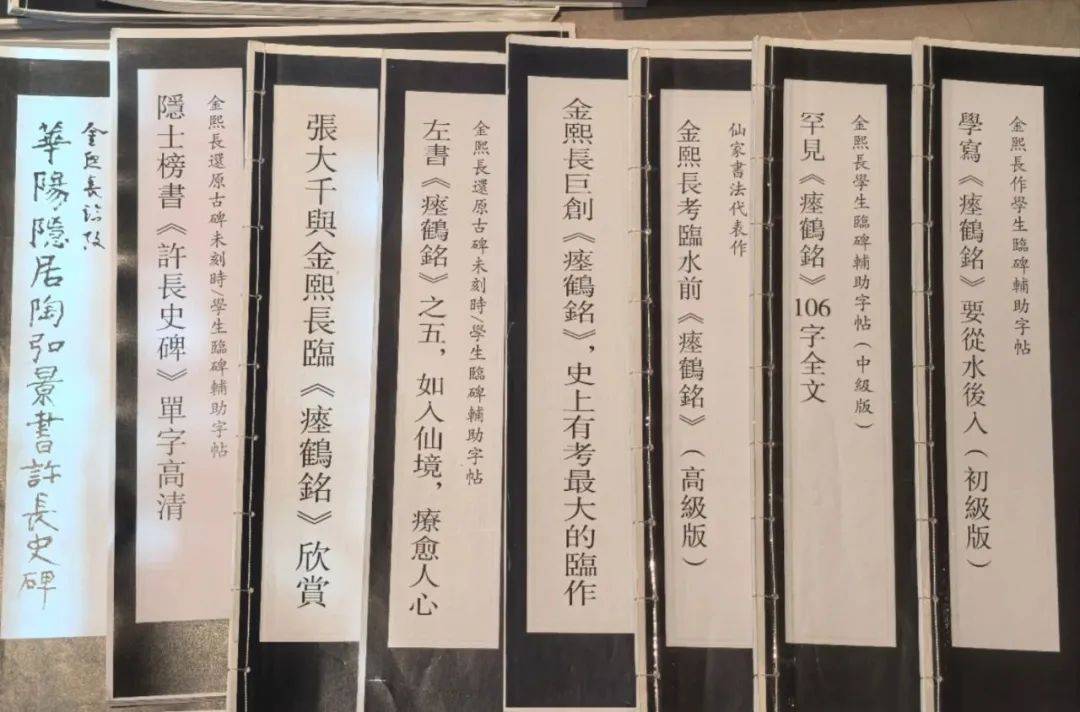 金熙長作學生臨碑輔助字帖
學寫《瘞鶴銘》要從水後入（初級版）
金熙長學生臨碑輔助字帖（中級版）
罕見《瘞鶴銘》106字全文
仙家書法代表作
金熙長考臨水前《瘞鶴銘》（高級版）
金熙長巨創《瘞鶴銘》，史上有考最大的臨作
金熙長還原古碑未刻時、學生臨碑輔助字帖
左書《瘞鶴銘》之五，如入仙境，療愈人心
張大千與金熙長臨《瘞鶴銘》欣賞
金熙長還原古碑未刻時、學生臨碑輔助字帖
隱士榜書《許長史碑》單字高清
金熙長
華陽隱居陶弘景書許長史碑